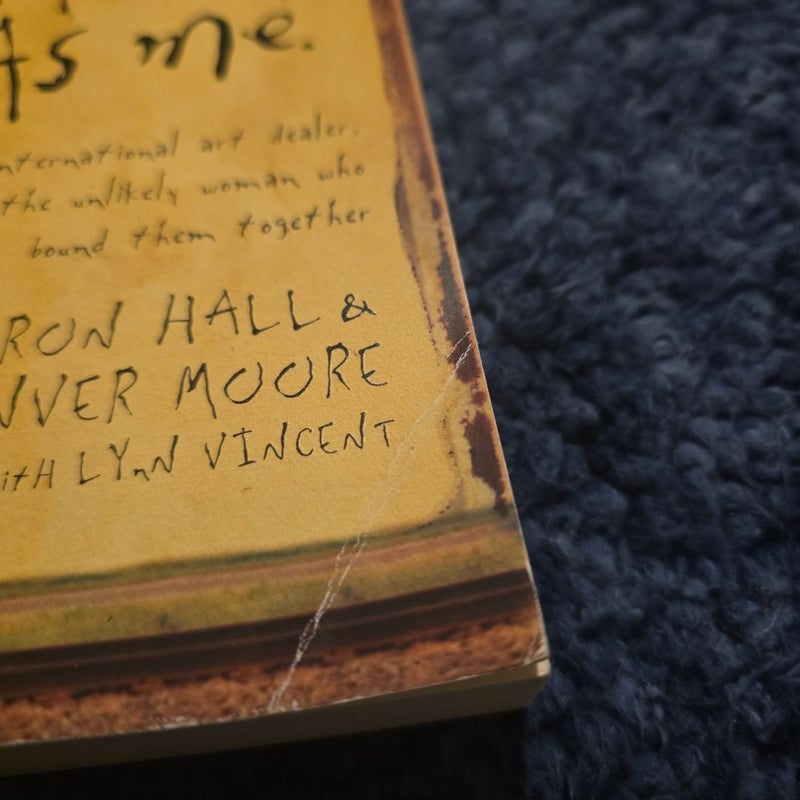 As me.
nternational art dealer,
the unlikely woman who
bound them together
RON HALL &
NVER MOORE
ith LYnN VINCENT